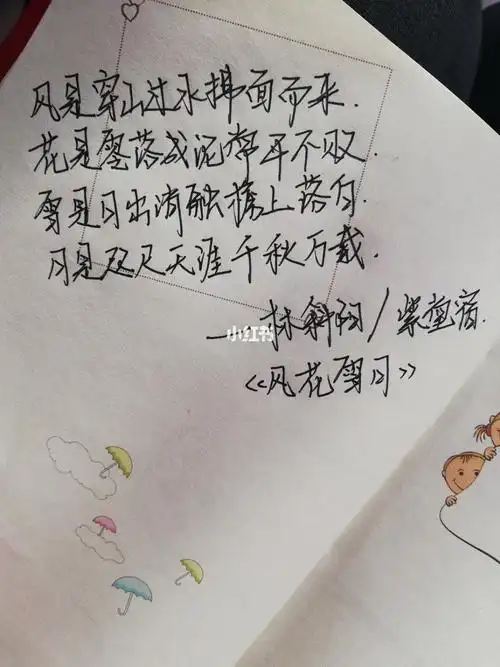 风是穿山过水拂面而来.
花是零落成泥常开不败.
雪是日出消融檐上落白.
月是咫尺天涯千秋万载.
——抹斜阳/紫堂宿.
《风花雪月》
小红书